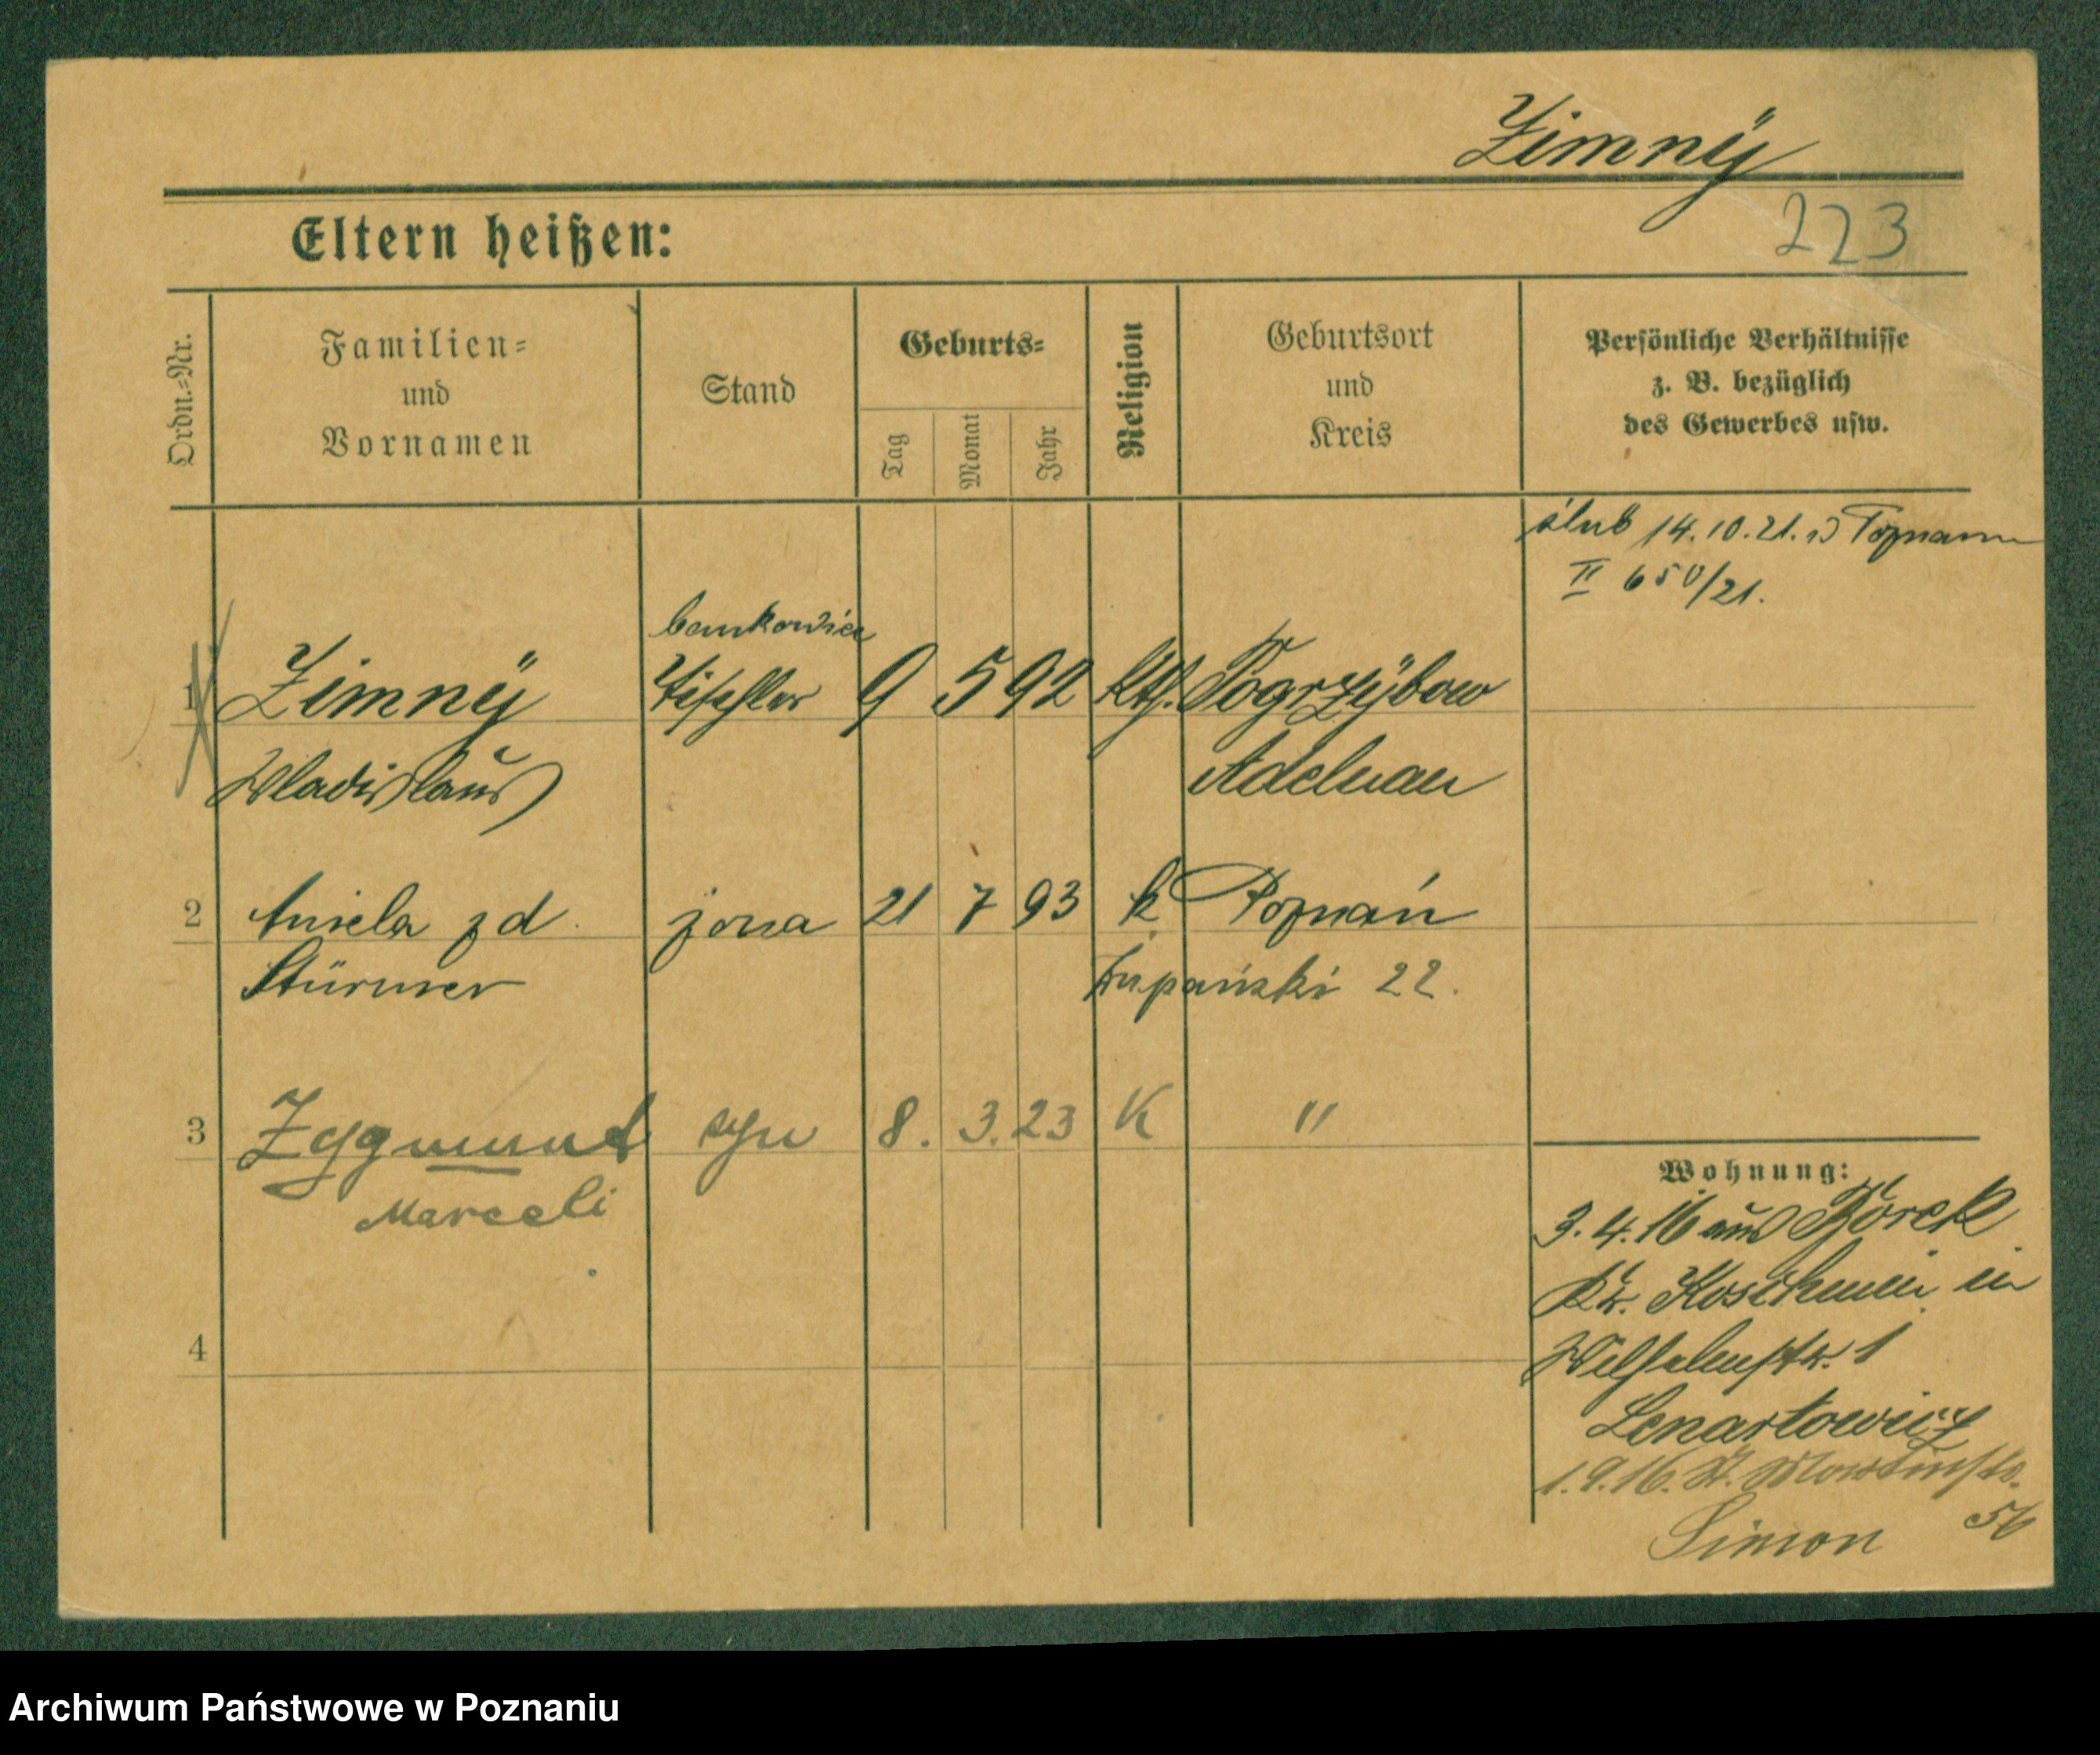 Zimnÿ
Eltern heißen:
223
Ordn.=Nr.
Familien=
und
Vornamen
Stand
Geburts=
Tag
Monat
Jahr
Religion
Geburtsort
und
Kreis
Persönliche Verhältnisse
z. B. bezüglich
des Gewerbes usw.
ślub 14.10.21. w Poznaniu
II 650/21.
bankowiec
1 Zimnÿ Tischler 9 5 92 kth. Pogrzÿbow
Wladislaus Adelnau
2 Aniela zd. żona 21 7 93 k Poznań
Stürmer Żupański 22.
3 Zygmunt syn 8. 3. 23 K "
Marceli
4
Wohnung:
3.4.16 aus Borek
Kr. Koschmin in
str. 1
Lenartowicz
1.9.16. St. Martinstr.
56
Simon
Archiwum Państwowe w Poznaniu